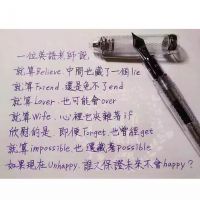 一位英語老師說，
就算Believe 中間也藏了一個lie
就算Friend 還是免不了end
就算Lover、也可能會over
就算Wife、心裡也夾雜著if
欣慰的是，即使Forget、也曾經get
就算impossible 也還藏著possible
如果現在Unhappy、誰又保證未來不會happy？